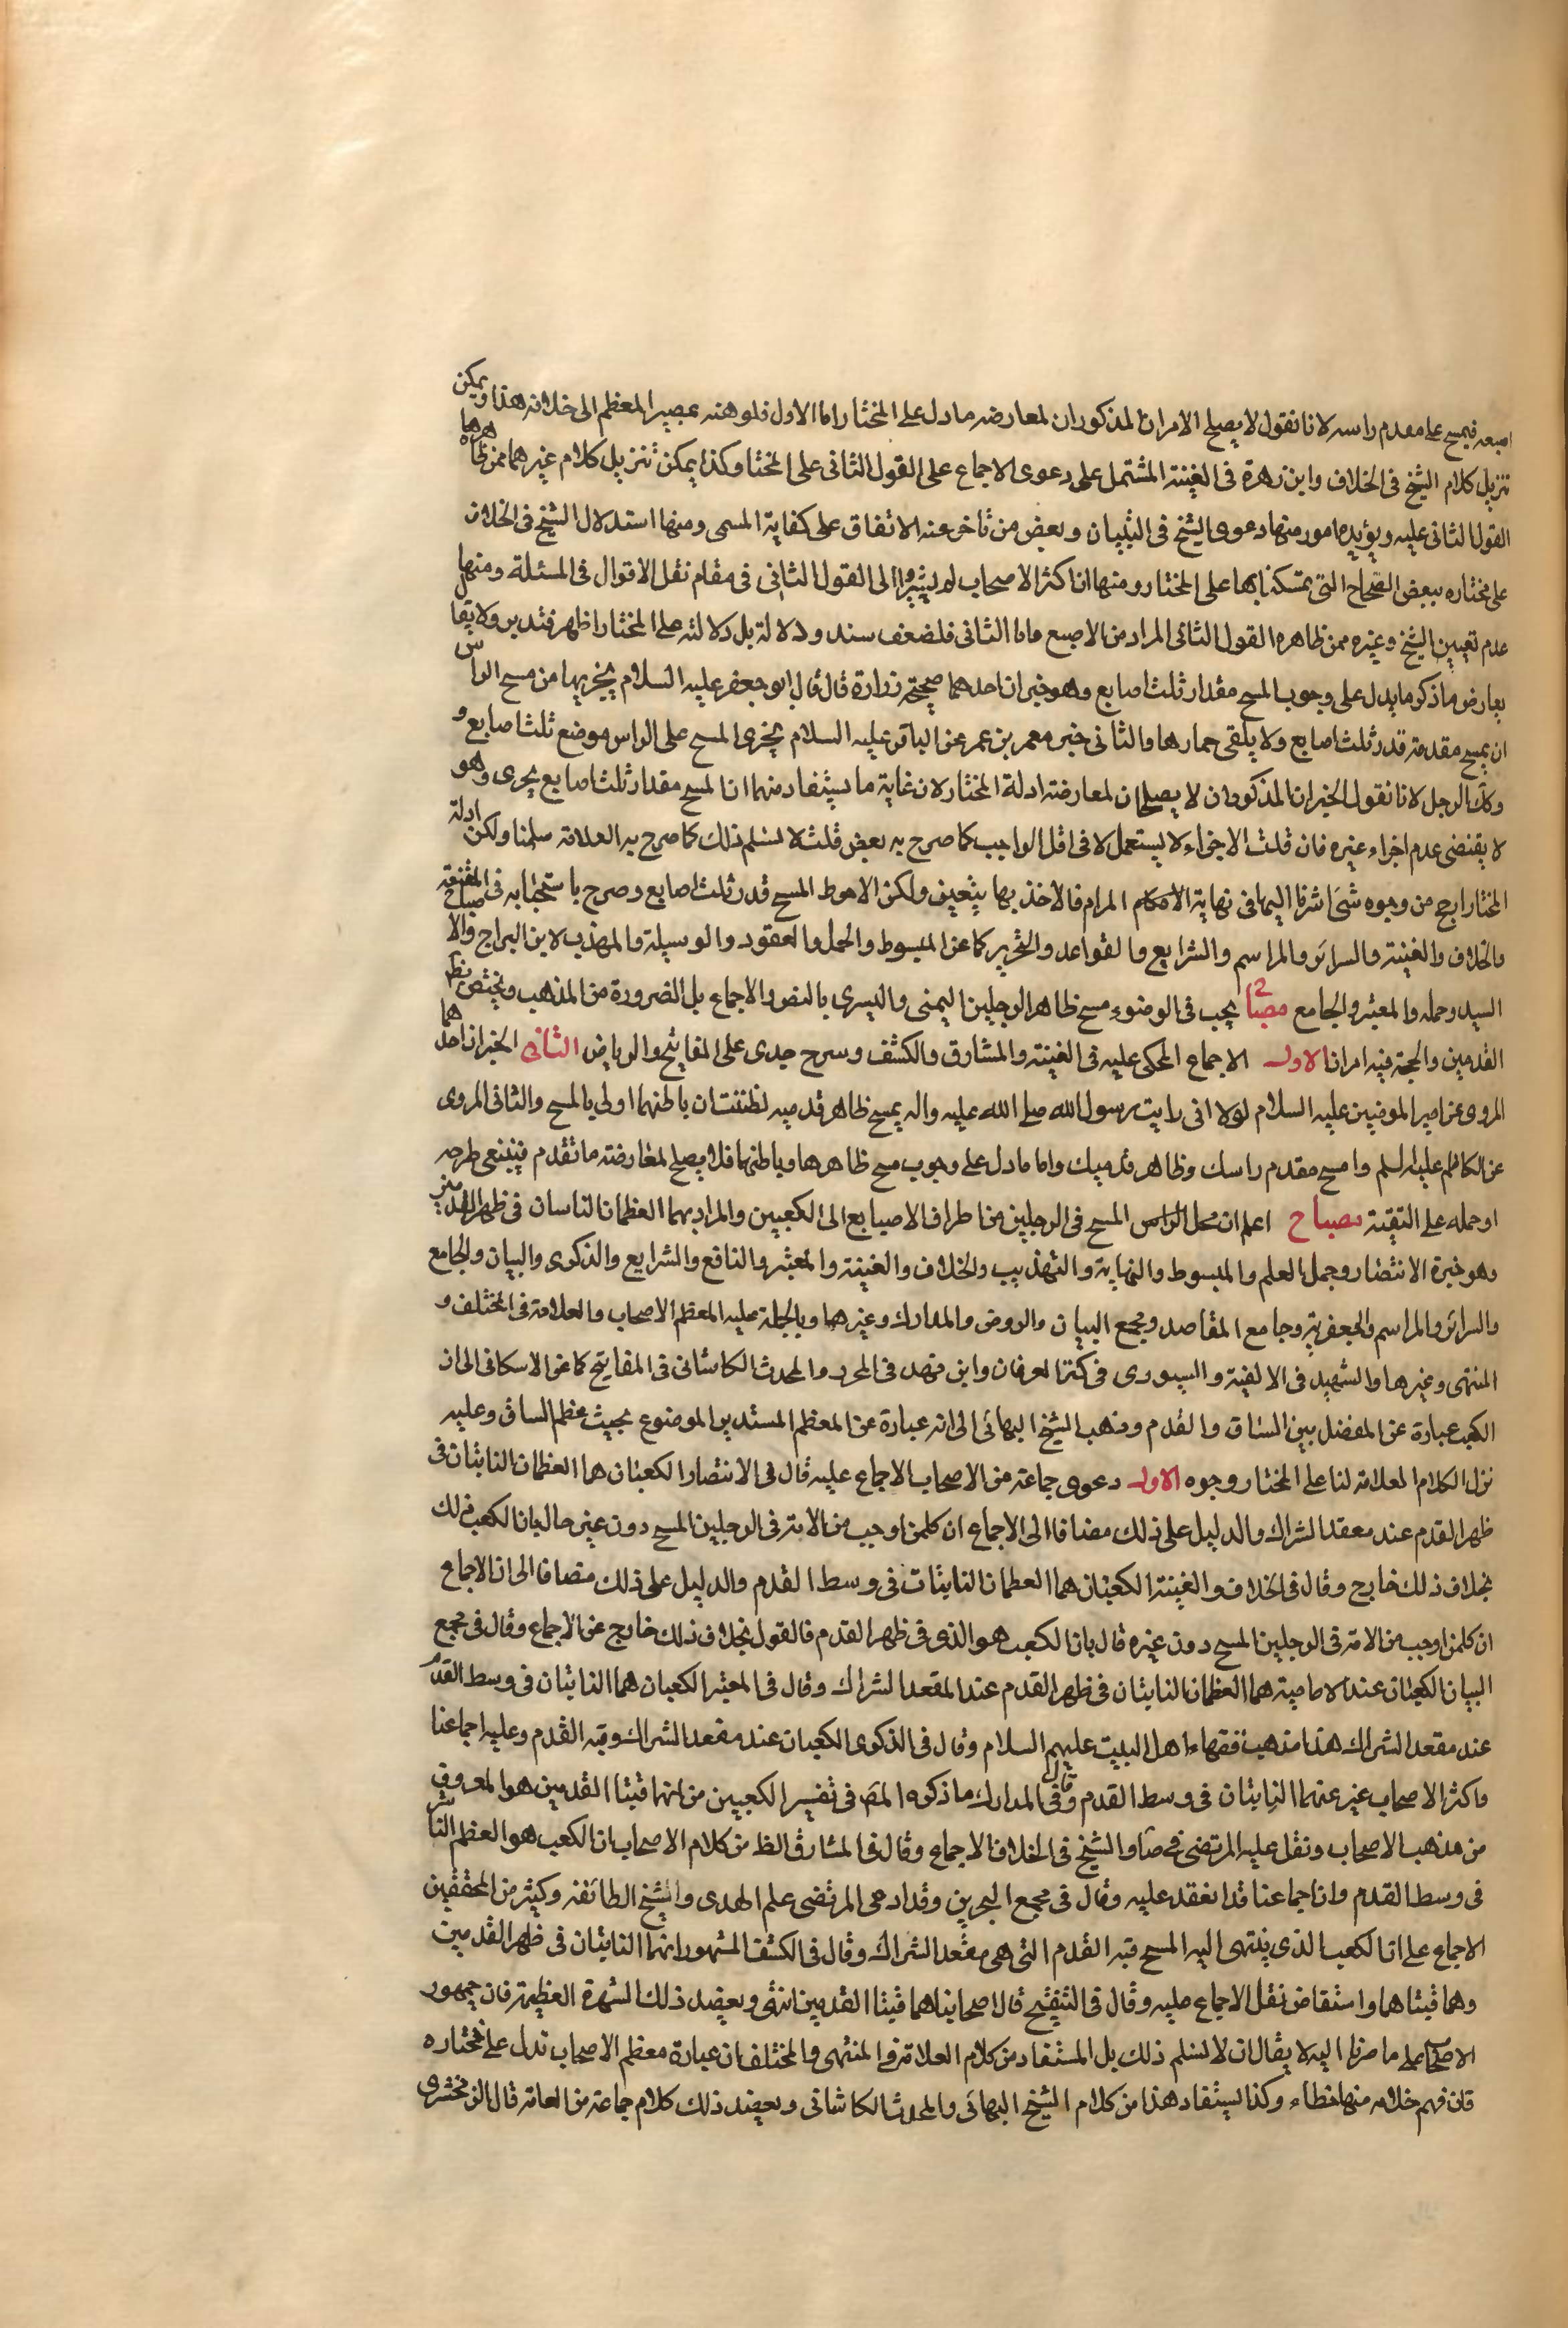 اصبعه فيمسح على مقدم راسه لانا نقول لا يصلح الامران المذكوران لمعارضه ما دل على المختار اما الاول فلوهنه بمصير المعظم الى خلافه هذا ويمكن
تنزيل كلام الشيخ في الخلاف وابن زهرة في الغنية المشتمل على دعوى الاجماع على القول الثاني على المختار وكذا يمكن تنزيل كلام غيرهما ممن ظاهرهما
القول الثاني عليه ويؤيده امور منها دعوى الشيخ في التبيان وبعض من تاخر عنه الاتفاق على كفاية المسمى ومنها استدلال الشيخ في الخلاف
على مختاره ببعض الصحاح التي تمسكنا بها على المختار ومنها ان اكثر الاصحاب لم يشيروا الى القول الثاني في مقام نقل الاقوال في المسئلة ومنها
عدم تعيين الشيخ وغيره ممن ظاهره القول الثاني المراد من الاصبع واما الثاني فلضعف سند ودلالة بل دلالته على المختار اظهر فتدبر ولا يقال
يعارض ما ذكر ما يدل على وجوب المسح مقدار ثلث اصابع وهو خبران احدهما صحيحة زرارة قال قال ابو جعفر عليه السلام يجزيها من مسح الراس
ان يمسح مقدمة قدر ثلث اصابع ولا يلقى خمارها والثاني خبر معمر بن عمر عن الباقر عليه السلام يجزى المسح على الراس موضع ثلث اصابع و
وكك الرجل لانا نقول الخبران المذكوران لا يصلحان لمعارضة ادلة المختار لان غاية ما يستفاد منهما ان المسح مقدار ثلث اصابع يجزى وهو
لا يقتضى عدم اجزاء غيره فان قلت الاجزاء لا يستعمل الا في اقل الواجب كما صرح به بعض قلت لا نسلم ذلك كما صرح به العلامة سلمنا ولكن ادلة
المختار ارجح من وجوه شتى اشرنا اليها في نهاية الاحكام المرام فالاخذ بها يتعين ولكن الاحوط المسح قدر ثلث اصابع وصرح باستحبابه في المقنعة
والخلاف والغنية والسرائر والمراسم والشرايع والقواعد والتحرير كما عن المبسوط والجمل والعقود والوسيلة والمهذب لابن البراج والاصباح
السيد وجمله والمعتبر والجامع مصبا يجب في الوضوء مسح ظاهر الرجلين اليمنى واليسرى بالنص والاجماع بل الضرورة من المذهب ويختص بظهر
القدمين والحجة فيه امران الاول الاجماع المحكي عليه في الغنية والمشارق والكشف وشرح جدى على المفاتيح والرياض الثاني الخبران احدهما
المروى عن امير المومنين عليه السلام لولا انى رايت رسول الله صلى الله عليه واله يمسح ظاهر قدميه لظننت ان باطنهما اولى بالمسح والثاني المروى
عن الكاظم عليه السلم وامسح مقدم راسك وظاهر قدميك واما ما دل على وجوب مسح ظاهرها وباطنها فلا يصلح لمعارضة ما تقدم فينبغى طرحه
او حمله على التقية مصباح اعلم ان محل الراس المسح في الرجلين من اطراف الاصابع الى الكعبين والمراد بهما العظمان الناتيان في ظهر القدمين
وهو خيرة الانتصار وجمل العلم والمبسوط والنهاية والتهذيب والخلاف والغنية والمعتبر والنافع والشرايع والذكرى والبيان والجامع
والسرائر والمراسم والجعفرية وجامع المقاصد ومجمع البيان والروض والمدارك وغيرها وبالجملة عليه المعظم الاصحاب والعلامة في المختلف و
المنتهى وغيرها والشهيد في الالفية والسيورى في كنز العرفان وابن فهد في المحرر والمحدث الكاشاني في المفاتيح كما عن الاسكافى الى ان
الكعب عبارة عن المفصل بين الساق والقدم وذهب الشيخ البهائى الى انه عبارة عن العظم المستدير الموضوع بحيث عظم الساق وعليه
نزل الكلام العلامة لنا على المختار وجوه الاول دعوى جماعة من الاصحاب الاجماع عليه قال في الانتصار الكعبان هما العظمان الناتيان في
ظهر القدم عند معقد الشراك والدليل على ذلك مضافا الى الاجماع ان كل من اوجب من الامة في الرجلين المسح دون غيره حال بان الكعب ذلك
بخلاف ذلك خارج وقال في الخلاف والغنية الكعبان هما العظمان الناتيان في وسط القدم والدليل على ذلك مضافا الى ان الاجماع
ان كل من اوجب من الامة في الرجلين المسح دون غيره قال بان الكعب هو الذى في ظهر القدم فالقول بخلاف ذلك خارج عن الاجماع وقال في مجمع
البيان الكعبان عند الامامية هما العظمان الناتيان في ظهر القدم عند المقعد الشراك وقال في المعتبر الكعبان هما الناتيان في وسط القدم
عند مقعد الشراك هذا مذهب فقهاء اهل البيت عليهم السلام وقال في الذكرى الكعبان عند مقعد الشراك وقبة القدم وعليه اجماعنا
واكثر الاصحاب عبر عنهما الناتيان في وسط القدم وقال في المدارك ما ذكره المص في تفسير الكعبين من انهما قبتا القدمين هو المعروف
من مذهب الاصحاب ونقل عليه المرتضى رضه والشيخ في الخلاف الاجماع وقال في المشارق الظ من كلام الاصحاب ان الكعب هو العظم الناشز
في وسط القدم وان اجماعنا قد انعقد عليه وقال في مجمع البحرين وقد ادعى المرتضى علم الهدى والشيخ الطائفه وكثير من المحققين
الاجماع على ان الكعب الذى ينتهى اليه المسح قبة القدم التي هى مقعد الشراك وقال في الكشف المشهور انهما الناتيان في ظهر القدمين
وهما قبتاهما واستفاض نقل الاجماع عليه وقال في التنقيح قال اصحابنا هما قبتا القدمين انتهى ويعضد ذلك الشهرة العظيمة فان جمهور
الاصحاب على ما صرنا اليه لا يقال ان لا نسلم ذلك بل المستفاد من كلام العلامة في المنتهى والمختلف ان عبارة معظم الاصحاب تدل على مختاره
فان فهم خلافه منها خطاء وكذا يستفاد هذا من كلام الشيخ البهائى والمحدث الكاشانى ويعضد ذلك كلام جماعة من العامة قال الزمخشرى